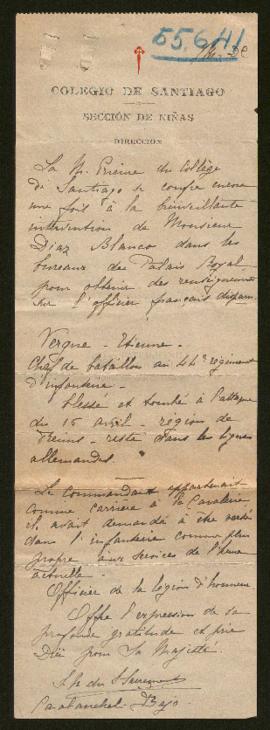 55.641
COLEGIO DE SANTIAGO
SECCIÓN DE NIÑAS
DIRECCIÓN
La M. Prieure du Collège
de Santiago se confie encore
une fois à la bienveillante
intervention de Monsieur
Diaz Blanco dans les
bureaux du Palais Royal
pour obtenir des renseignements
sur l'officier français disparu.
Vergne - Etienne -
Chef de bataillon au 44e régiment
d'infanterie -
blessé et tombé à l'attaque
du 16 avril - région de
Reims - resté dans les lignes
allemandes
Le Commandant appartenait
comme carrière à la Cavalerie
et avait demandé à être versé
dans l'infanterie comme plus
propre aux services de l'heure
actuelle -
Officier de la légion d'honneur
Offre l'expression de sa
profonde gratitude et prie
Dieu pour Sa Majesté.
du St Sacrement
Carabanchel Bajo.